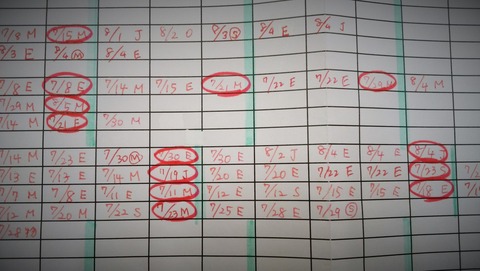 7/9 M 7/15 M 8/1 J 8/2 O 8/3 S 8/4 E 8/4 J
8/3 E 8/4 M 8/4 E
7/8 E 7/8 E 7/14 M 7/15 E 7/21 M 7/22 E 7/22 E 7/29 M 8/4 M
7/29 M 8/5 M
7/14 M 7/21 E 7/30 M
7/14 M 7/23 E 7/30 M 7/30 E 7/30 E 8/2 J 8/4 E 8/4 E 8/4 J
7/13 E 7/13 E 7/14 M 7/19 J 7/20 E 7/20 E 7/22 E 7/22 E 7/23 S
7/7 M 7/8 E 7/11 E 7/11 M 7/12 E 7/12 S 7/15 E 7/15 E 7/18 E
7/12 M 7/20 M 7/22 S 7/23 M 7/25 E 7/28 E 7/29 S
7/28